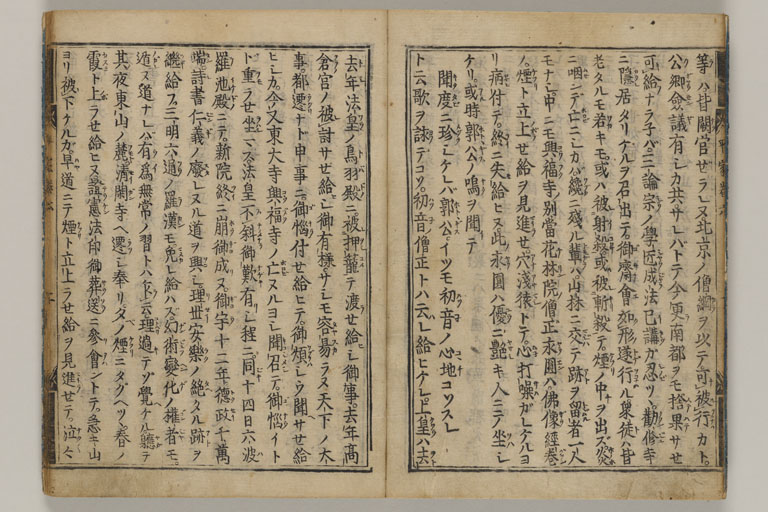 等ハ皆闕官せラレヌ北京ノ僧綱ヲ以テ可被行カトモ
公卿僉議有シカ共サレハトテ今更南都ヲモ捨果サせ
可給ナラ子バ三論宗ノ學匠成法已講ガ忍ツヽ勸修寺
ニ隱居タリケルヲ召出テ御齋會如形遂行ル衆徒ハ皆
老タルモ若キモ或ハ被射殺或被斬殺テ煙ノ中ヲ出ズ炎
ニ咽シテ亡ニシカバ纔ニ殘ル輩ハ山林ニ交テ跡ヲ留者一人
モナシ中ニモ興福寺別當花林院僧正永圓ハ佛像經卷
ノ煙ト立上せ給ヲ見進せ穴淺猿トテ心打噪ガレケルヨ
リ病付テ終ニ失給ヒヌ此永圓ハ優ニ艶キ人ニテ坐シ
ケリ或時郭公ノ鳴ヲ聞テ
聞度ニ珍シケレバ郭公イツモ初音ノ心地コソスレ
ト云歌ヲ詠テコソ初音僧正トハ云レ給ヒケレ上皇ハ去
去年法皇ノ鳥羽殿ニ被押籠テ渡せ給シ御事去年高
倉宮ノ被討サせ給シ御有樣サシモ容易ラヌ天下ノ大
事都遷ナド申事ニ御惱付せ給ヒテ御煩シウ聞サせ給
ヒシカ今又東大寺興福寺ノ亡ヌルヨシ聞召テ御惱イト
ト重ラせ坐マス法皇不斜御歎有シ程ニ同十四日六波
羅池殿ニテ新院終ニ崩御成ヌ御宇十二年德政千萬
端詩書仁義ノ廢レヌル道ヲ興シ理世安樂ノ絶タル跡ヲ
繼給フ三明六通ノ羅漢モ免レ給ハズ幻術變化ノ權者モ
遁ヌ道ナレバ有爲無常ノ習トハ乍云理過テゾ覺ケル軈テ
其夜東山ノ麓清閑寺ヘ遷シ奉リ夕ノ煙ニタグヘツヽ春ノ
霞ト上ラせ給ヒヌ證憲法印御葬送ニ參會ントテ急キ山
ヨリ被下ケルカ早道ニテ煙ト立上ラせ給ヲ見進せテ泣々